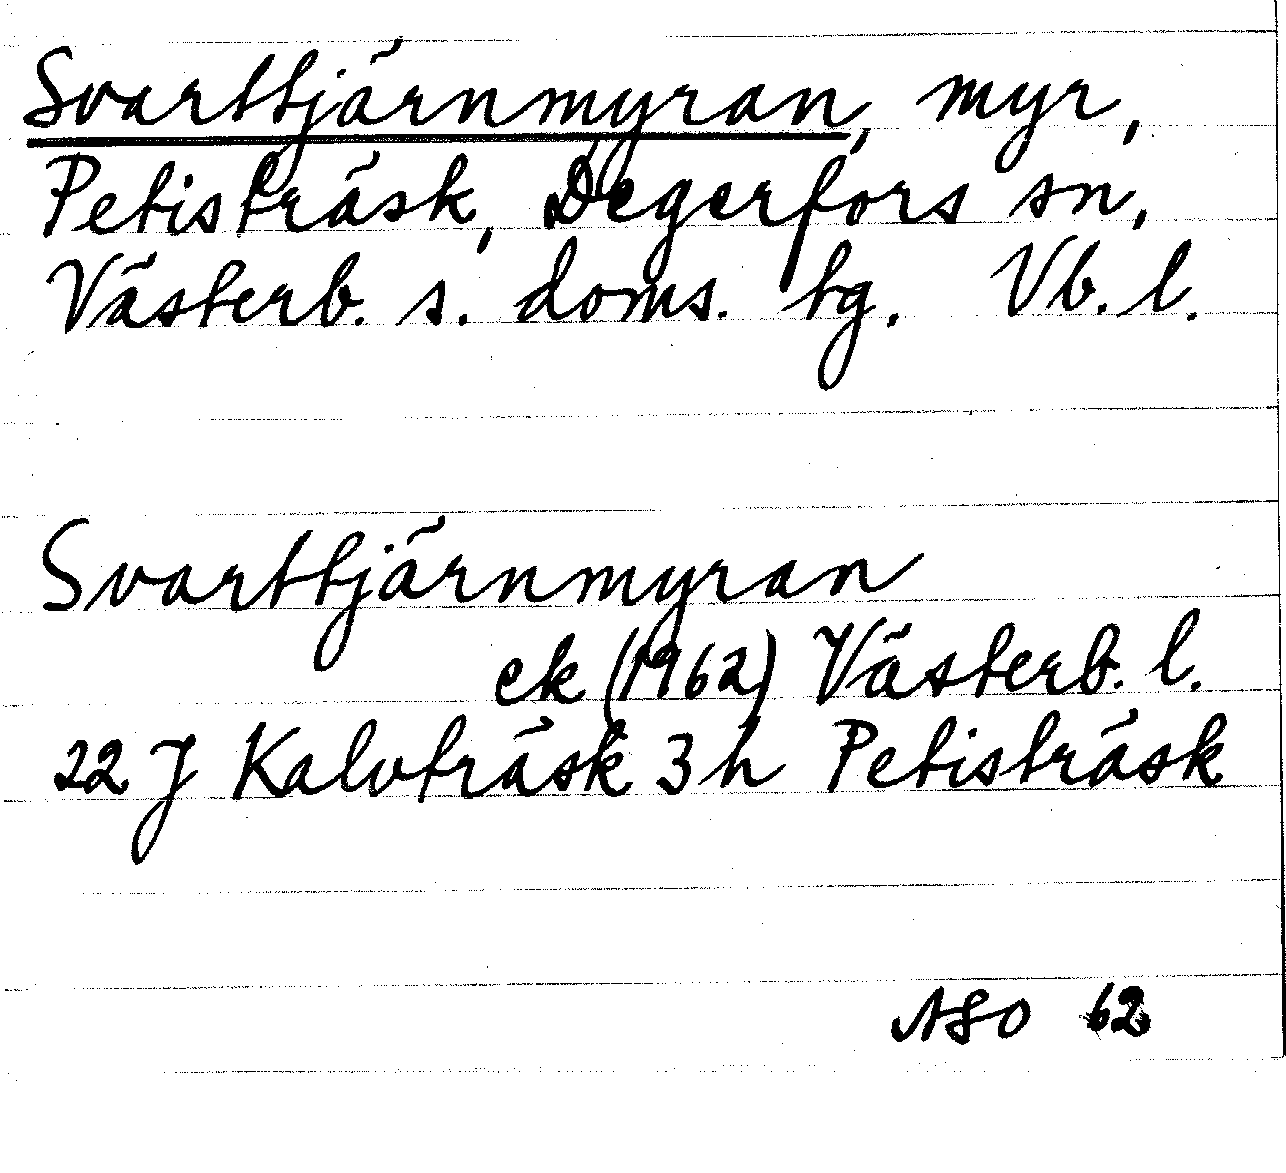 Svarttjärnmyran, myr,
Petisträsk, Degerfors sn,
Västerb. s. doms. tg. Vb. l.
Svarttjärnmyran
ek (1962) Västerb. l.
22 J Kalvträsk 3 h Petisträsk
ASO 62